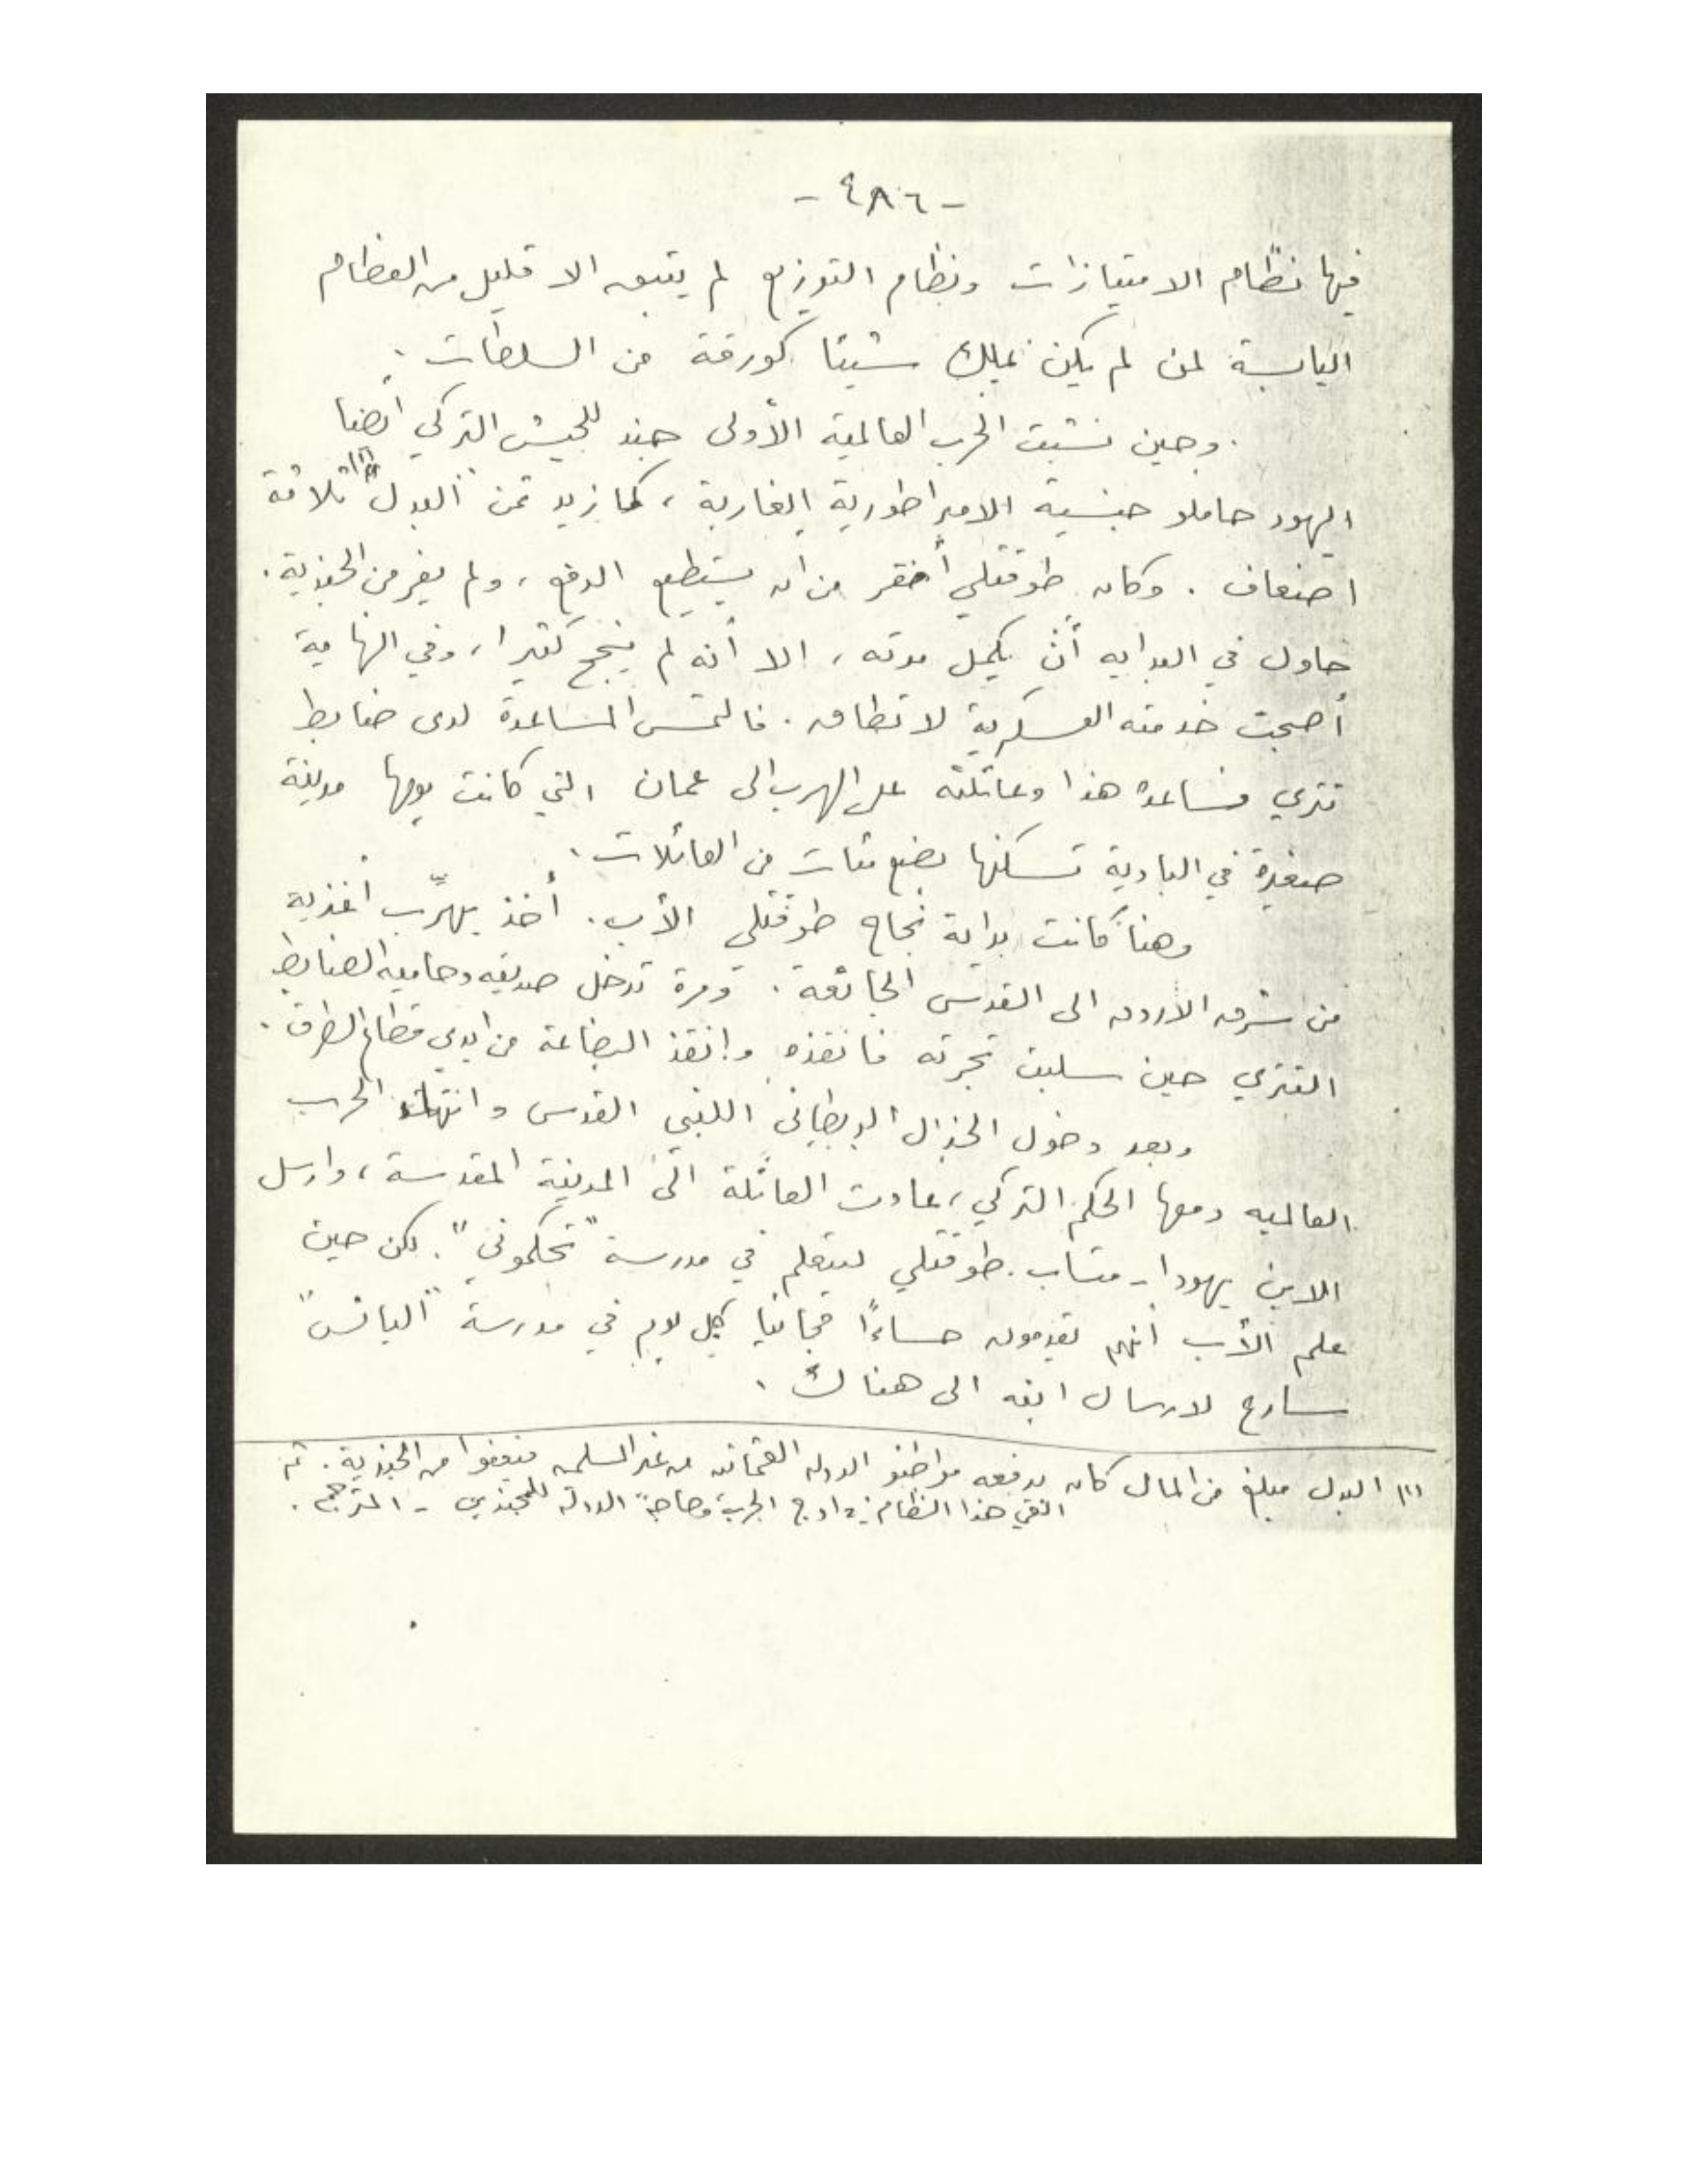 - ٤٨٦ -
فيها نظام الامتيازات ونظام التوزيع لم يتبق الا قليل من العظام
اليابسة لمن لم يكن يملك شيئا كورقة من السلطات .
وحين نشبت الحرب العالمية الأولى جند للجيش التركي أيضا
اليهود حاملو جنسية الامبراطورية الغاربة ، كما زيد ثمن "البدل" (١) ثلاثة
اضعاف . وكان طوقتلي أفقر من ان يستطيع الدفع ، ولم يفر من الجندية .
حاول في البدايه أن يكمل مدته ، الا أنه لم ينجح كثيرا ، وفي النهاية
أصبحت خدمته العسكرية لا تطاق . فالتمس المساعدة لدى ضابط
تتري فساعده هذا وعائلته على الهرب الى عمان التي كانت يومها مدينة
صغيرة في البادية تسكنها بضع مئات من العائلات .
وهنا كانت بداية نجاح طوقتلي الأب . أخذ يهرّب أغذية
من شرق الاردن الى القدس الجائعة . ومرة تدخل صديقه وحاميه الضابط
التتري حين سلبت تجرته فانقذه وانقذ البضاعة من ايدي قطاع الطرق .
وبعد دخول الجنرال البريطاني اللنبي القدس وانتهاء الحرب
العالميه ومعها الحكم التركي ، عادت العائلة الى المدينة المقدسة ، وارسل
الابن يهودا - متساب . طوقتلي ليتعلم في مدرسة "تحكموني" . لكن حين
علم الأب أنهم يقدمون حساءً مجانيا كل يوم في مدرسة "اليانس"
سارع لارسال ابنه الى هناك .
(١) البدل مبلغ من المال كان يدفعه مواطنو الدولة العثمانية من غير المسلمين فيعفوا من الجندية . ثم
الغي هذا النظام في اوج الحرب وحاجة الدولة للمجندين - المترجم .